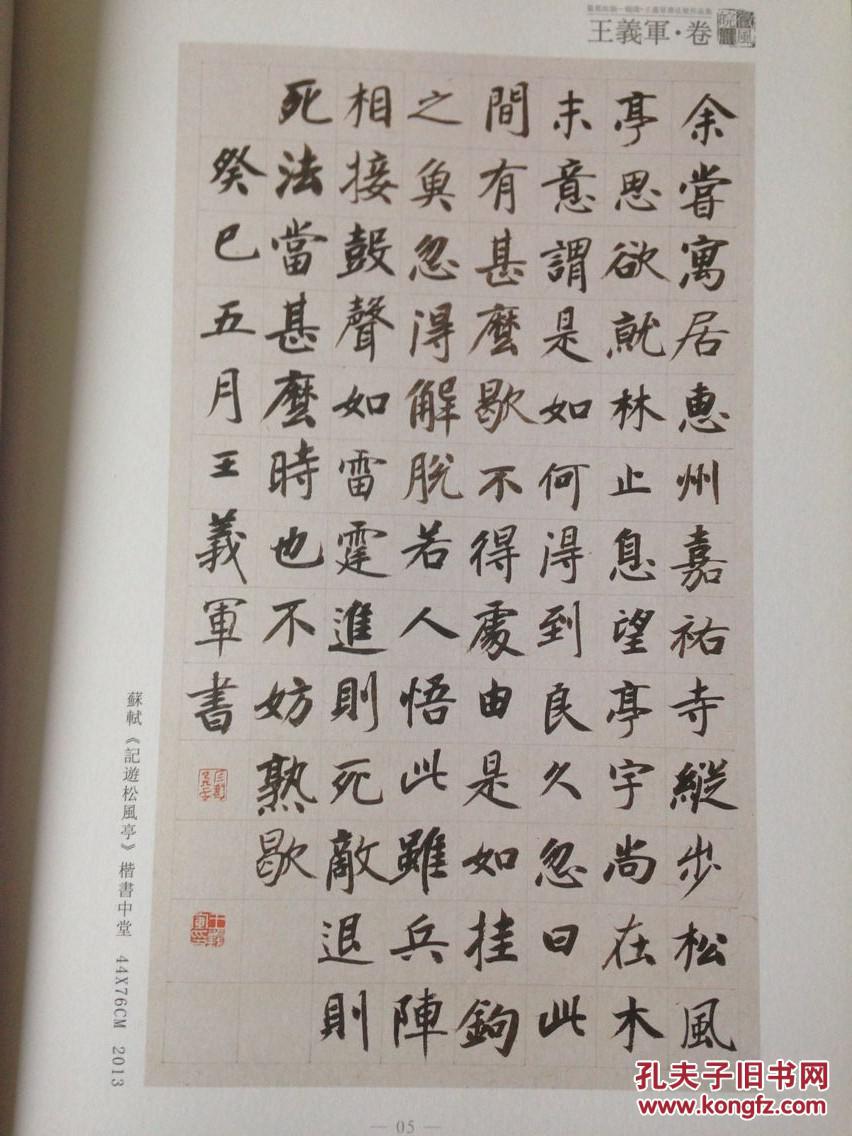 王義軍·卷
余嘗寓居惠州嘉祐寺縱步松風
亭思欲就林止息望亭宇尚在木
末意謂是如何得到良久忽曰此
間有甚麼歇不得處由是如挂鉤
之魚忽得解脫若人悟此雖兵陣
相接鼓聲如雷霆進則死敵退則
死法當甚麼時也不妨熟歇
癸巳五月王義軍書
蘇軾《記遊松風亭》楷書中堂 44X76CM 2013
— 05 —
孔夫子旧书网
www.kongfz.com